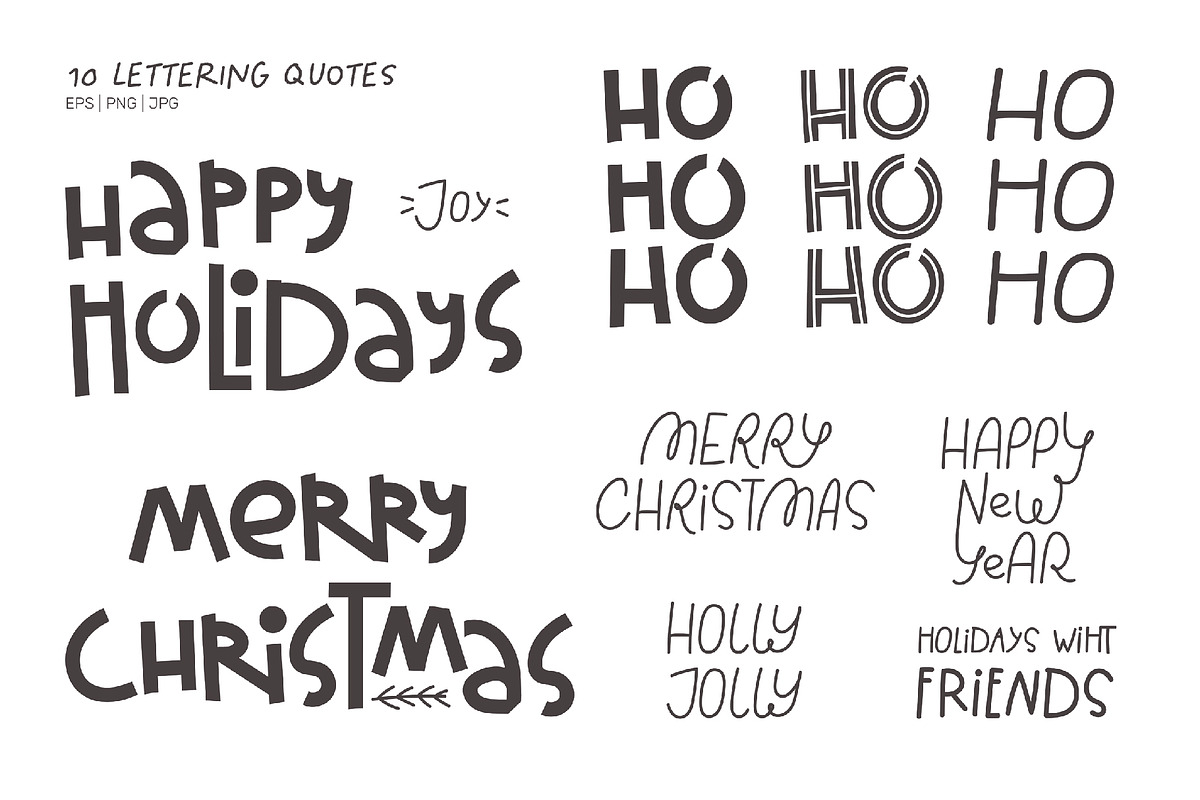 10 LETTERING QUOTES
EPS | PNG | JPG
HaPPy
Joy
HoLiDays
MeRRy
CHRiSTMas
HO
HO
HO
HO
HO
HO
HO
HO
HO
MERRY
CHRiSTMAS
HAPPY
New
YeAR
HOLLY
JOLLY
HOLiDAYS WiHT
FRiENDS